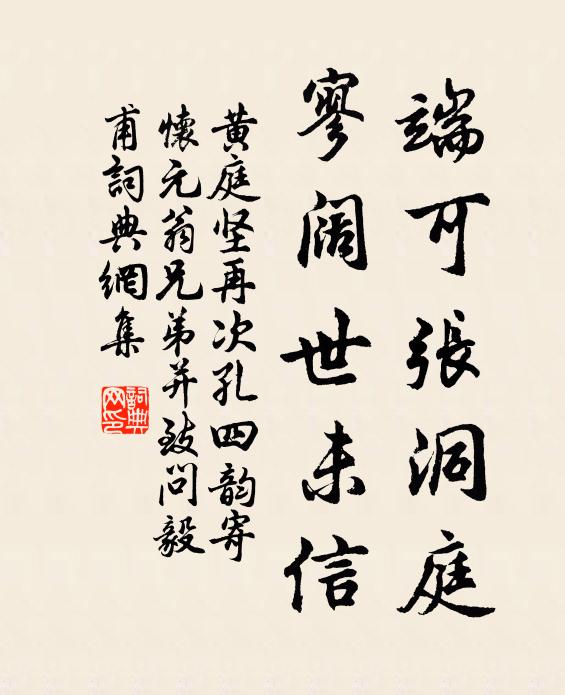 端可張洞庭
寥阔世未信
黄庭坚再次孔四韵寄
懷元翁兄弟并致問毅
甫詞典網集
詞典
网印